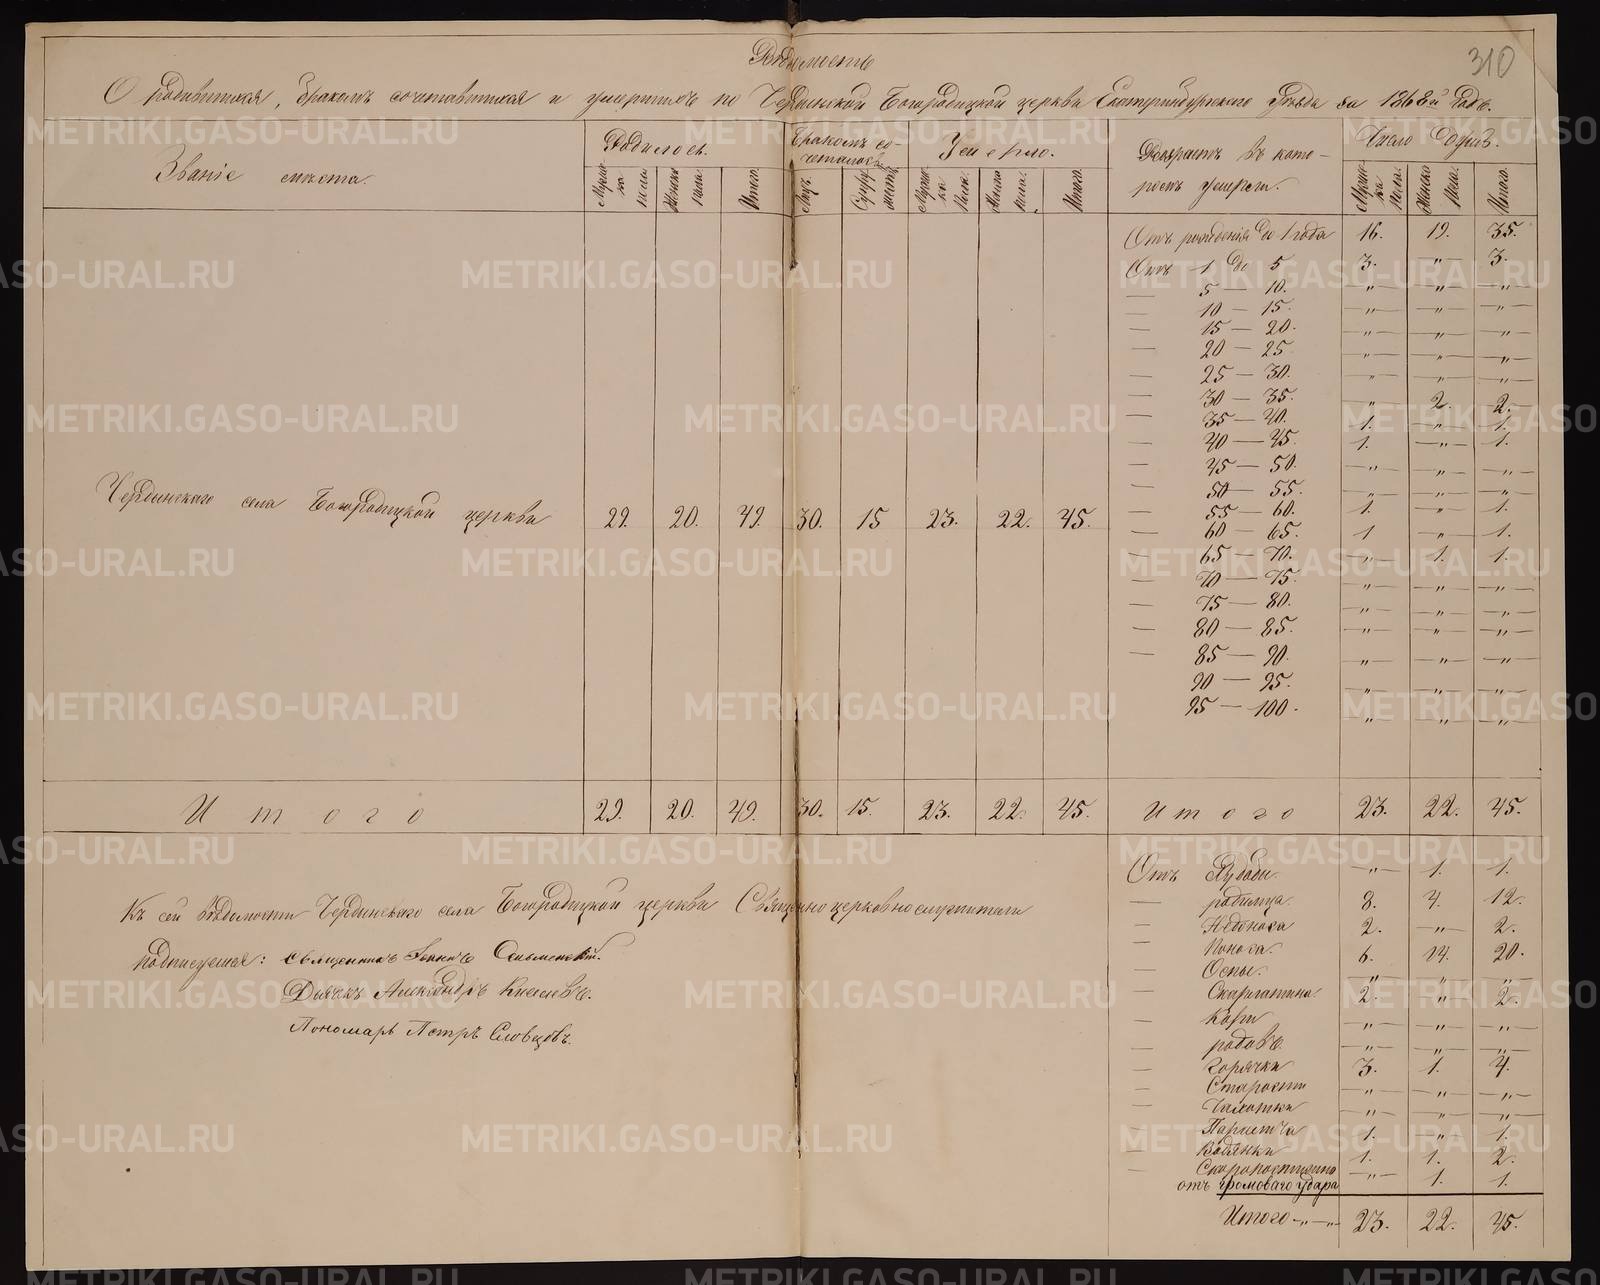 310
Вѣдомость
О родившихся, бракомъ сочетавшихся и умершихъ по Чердынской Богородицкой церкви Екатеринбургскаго Уѣзда за 1868й Годъ.
Званіе мѣста.
Родилось.
Бракомъ сочеталось
Умерло.
Возрастъ въ которомъ умерли.
Число Душъ.
Муж-ка пола
Женска пола
Итого.
Лицъ.
Супружествъ
Муж-ка Пола.
Женска пола.
Итого.
Муж-ка Пола.
Женска Пола.
Итого.
Отъ рожденія до 1 года 16. 19. 35.
Отъ 1 до 5 3. „ 3.
— 5 — 10. „ „ „
— 10 — 15. „ „ „
— 15 — 20. „ „ „
— 20 — 25 „ „ „
— 25 — 30. „ „ „
— 30 — 35. „ 2. 2.
— 35 — 40. 1. „ 1.
— 40 — 45. 1. „ 1.
— 45 — 50. „ „ „
— 50 — 55. „ „ „
— 55 — 60. 1. „ 1.
— 60 — 65. 1 „ 1.
— 65 — 70. „ 1. 1.
— 70 — 75. „ „ „
— 75 — 80. „ „ „
— 80 — 85. „ „ „
— 85 — 90. „ „ „
90 — 95. „ „ „
95 — 100. „ „ „
Чердынскаго села Богородицкой церкви 29. 20. 49. 30. 15 23. 22. 45.
Итого 29. 20. 49. 30. 15. 23. 22. 45. Итого 23. 22. 45.
Къ сей вѣдомости Чердынскаго села Богородицкой церкви Священноцерковнослужители
подписуемся: священникъ Іоаннъ
Дьячекъ Александръ Киселевъ.
Пономарь Петръ Словцовъ.
Отъ „ 1. 1.
— родимца. 8. 4. 12.
— Недоноса 2. „ 2.
— Поноса. 6. 14. 20.
— Оспы. „ „ „
— Скарлатины. 2. „ 2.
— Кори „ „ „
— родовъ. „ „ „
— Горячки 3. 1. 4.
— Старости „ „ „
— Чахотки „ „ „
— Паралича 1. „ 1.
— Водянки 1. 1. 2.
— Скоропостижно
отъ громоваго удара „ 1. 1.
Итого „ „ 23. 22. 45.
METRIKI.GASO-URAL.RU